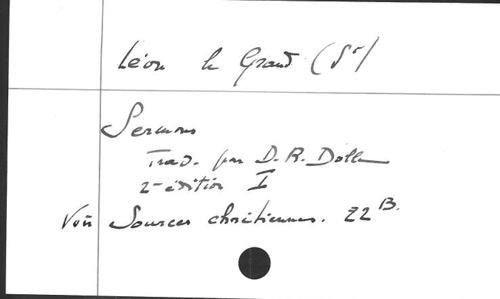 Léon le Grand (St)
Sermons
Trad. par D. R. Dolle
2e édition I
Voir Sources chrétiennes. 22 B.